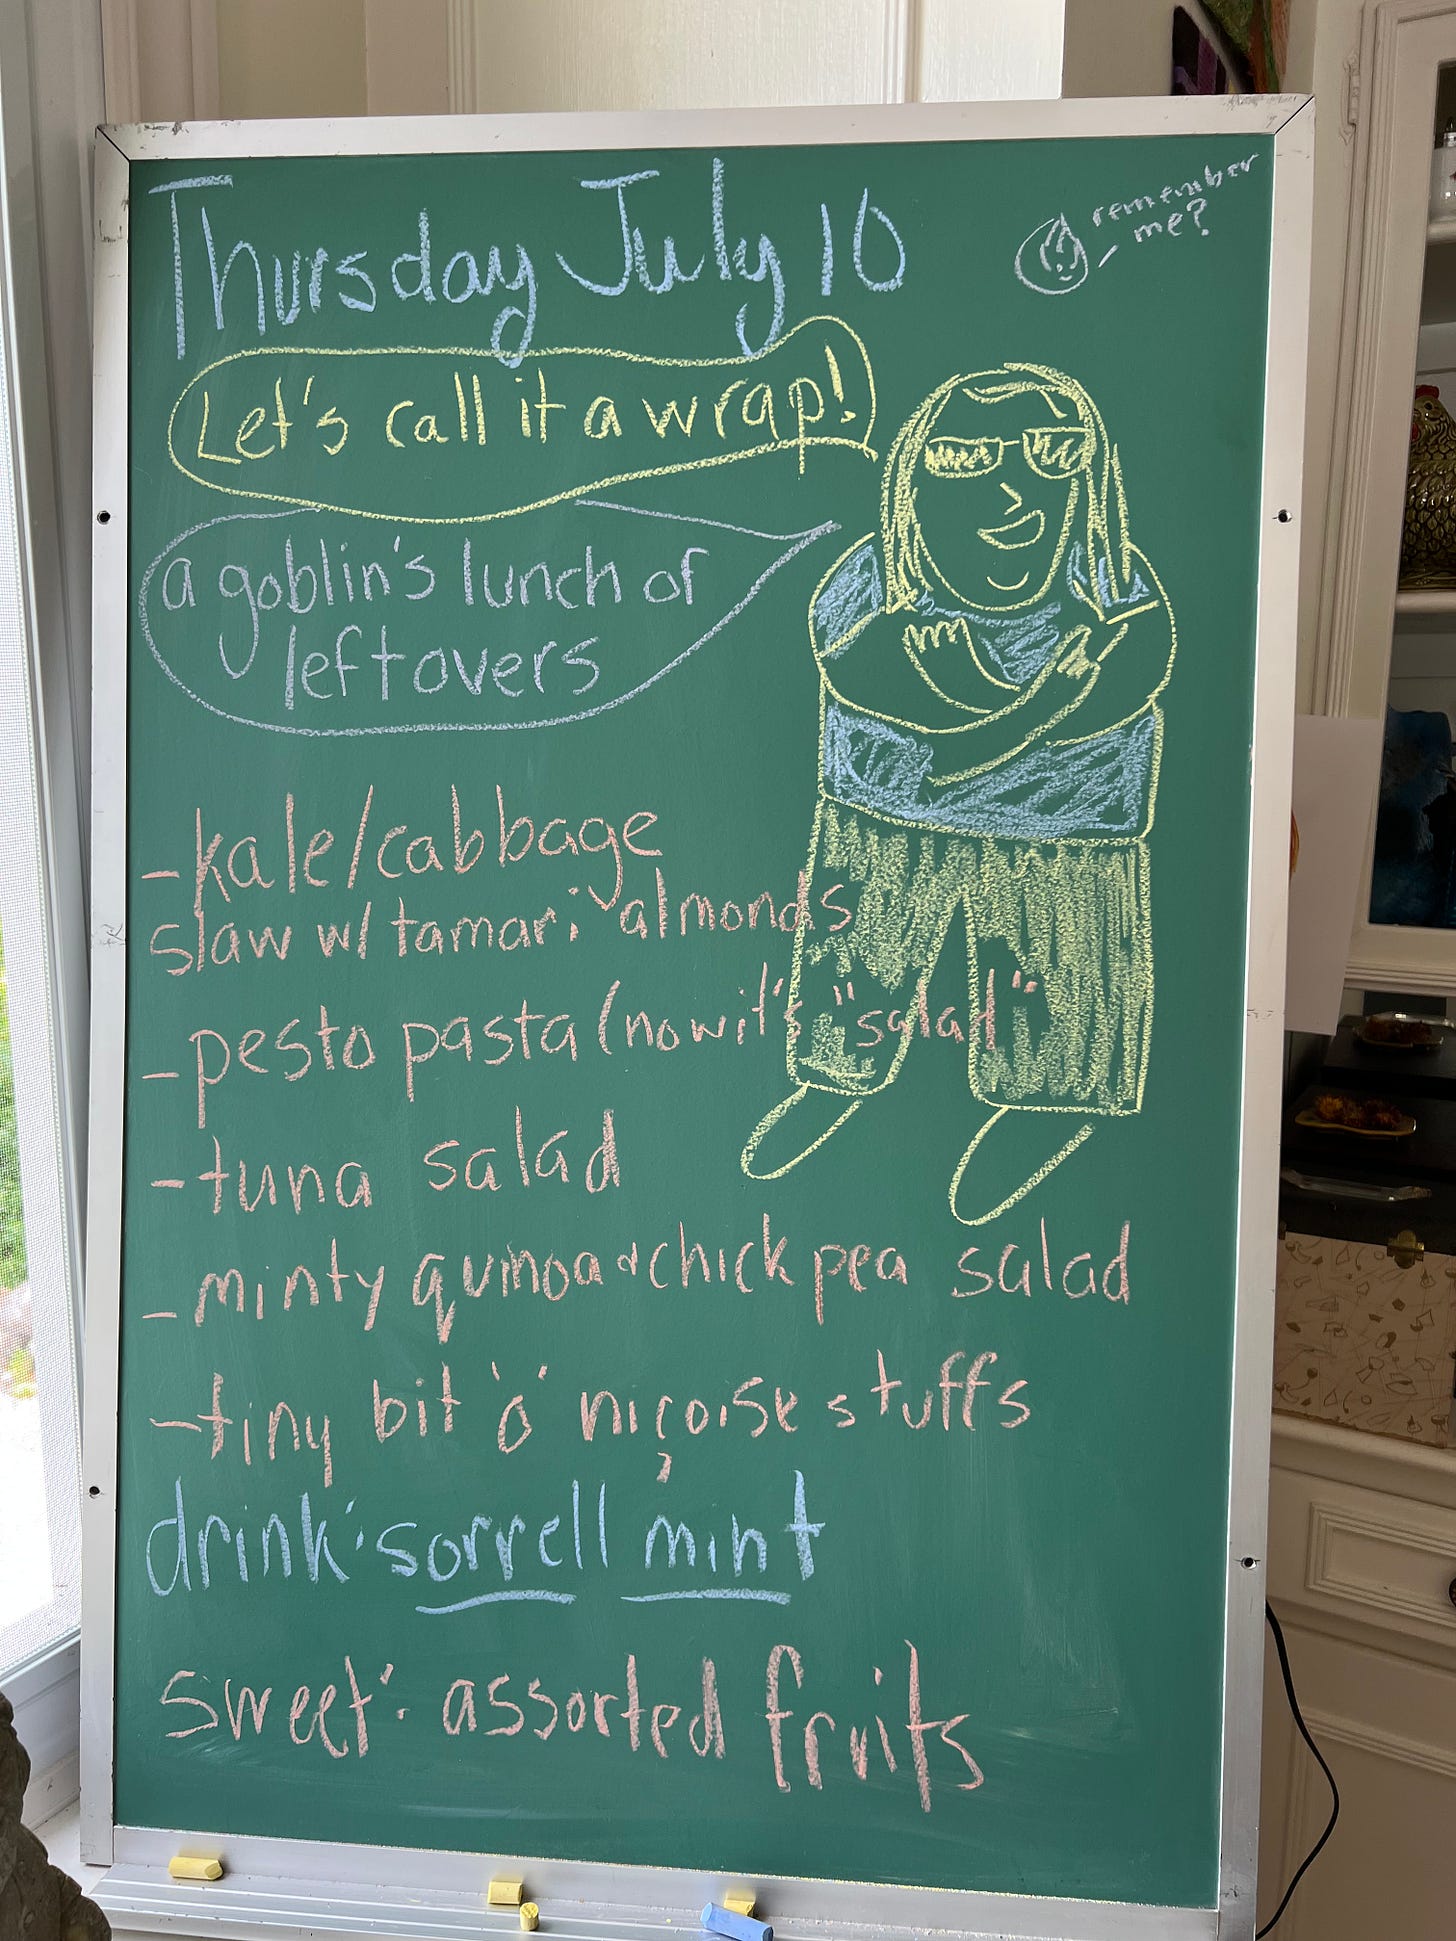 Thursday July 10
remember
me?
Let's call it a wrap!
a goblin's lunch of
leftovers
-kale/cabbage
slaw w/ tamari almonds
-pesto pasta (now it's "salad"
-tuna salad
-minty quinoa + chickpea salad
-tiny bit 'o' niçoise stuffs
drink: sorrell mint
sweet: assorted fruits